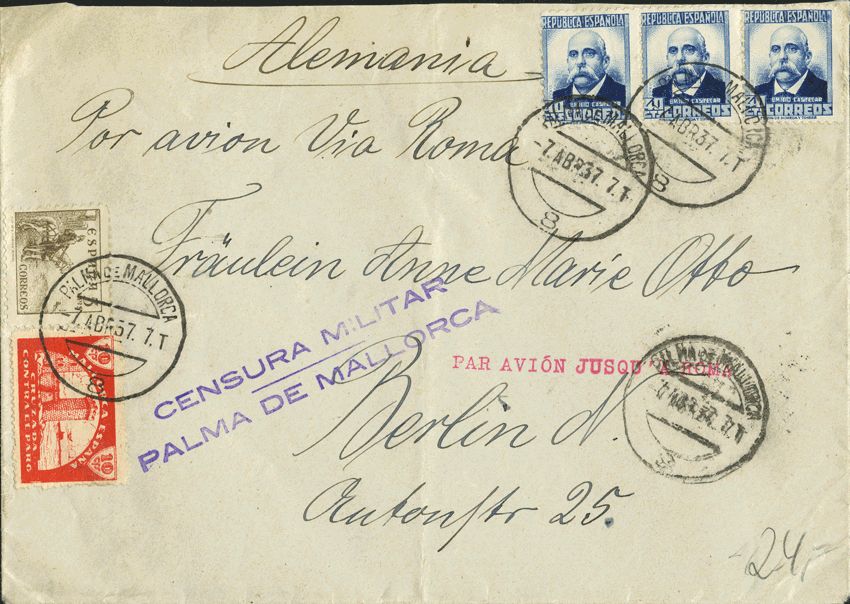 Alemania
REPUBLICA ESPAÑOLA
40
EMILIO CASTELAR
CORREOS
REPUBLICA ESPAÑOLA
40
EMILIO CASTELAR
CORREOS
REPUBLICA ESPAÑOLA
EMILIO CASTELAR
CORREOS
Por avion Via Roma
PALMA DE MALLORCA
-7.ABR37.7.T
8
PALMA DE MALLORCA
-7.ABR37.7.T
8
ESPAÑA
CORREOS
5
PALMA DE MALLORCA
-7.ABR37.7.T
8
Fräulein Anne Marie Otto
CENSURA MILITAR
PALMA DE MALLORCA
PAR AVIÓN JUSQU'A ROME
PALMA DE MALLORCA
-7.ABR37.7.T
8
10
ESPAÑA
CRUZADA
CONTRA EL PARO
10
Berlin N.
Antonstr 25.
-24,-